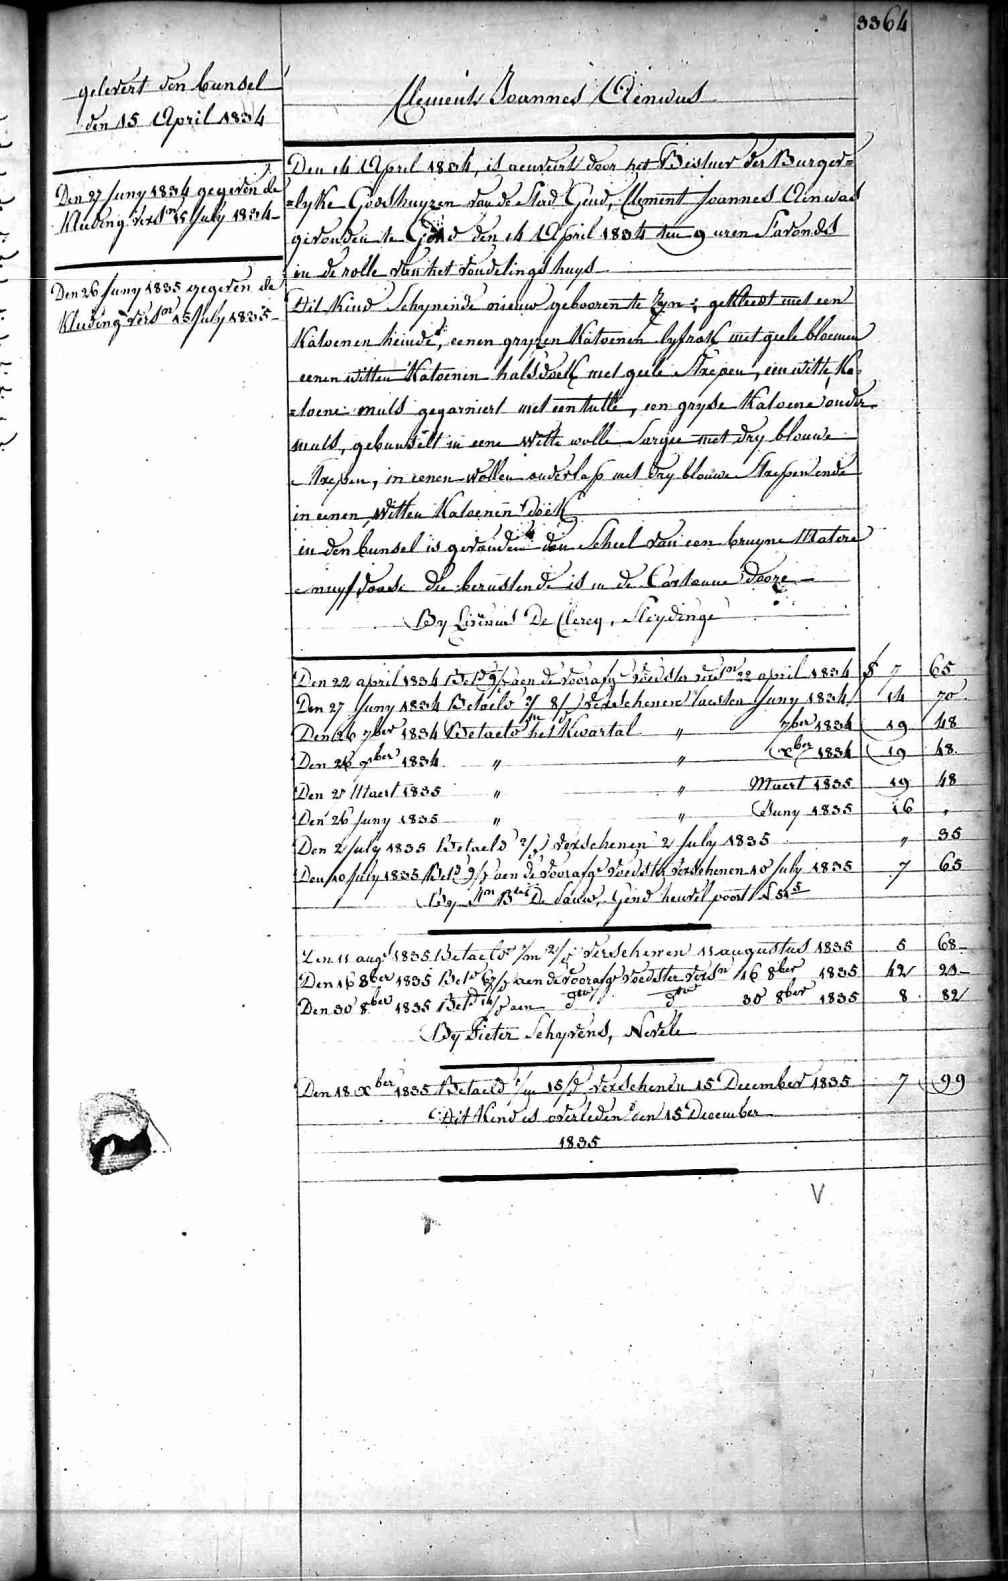 3364
gelevert den bunsel
den 15 April 1834
Clement Joannes Ainwas
Den 27 Juny 1834 gegeven de
Kleding versn 15 July 1834
Den 26 Juny 1835 gegeven de
Kleding versn 15 July 1835
Den 14 April 1834, is aenveirt door het Bestuer der Burger=
=lyke Godshuyzen van de Stad Gend, Clement Joannes Ainwas
gevonden te Gend den 14 April 1834 ten 9 uren Savonds
in de rolle van het vondelingshuys
Dit Kind Schynende nieuw gebooren te Zyn; gekleed met een
Katoenen heinde, eenen gryzen Katoenen lyfrok met geele bloemen
eenen witten Katoenen halsdoek met geele Strepen, een witte Ka=
=toene muts gegarniert met een tulle, een gryse Katoene onder
muts, gebunselt in eene witte wolle Sargie met dry blouwe
Strepen, in eenen wollen onderlap met dry blouwe Strepen ende
in eenen witten Katoenen doek
in den bunsel is gevonden den Scheel van een bruyne Matere
snuyfdoose die berustende is in de Cartonne dooze
By Livinus De Clercq, Sleydinge
Den 22 april 1834 Betd 9/j aen de voorafge voedster versn 22 april 1834 f 7 65
Den 27 Juny 1834 Betaeld 2/m 8/j verschenen laesten Juny 1834 14 70
Den 26 7ber 1834 Betaeld het Kwartal " 7ber 1834 19 48
Den 26 xber 1834 " " xber 1834 19 48
Den 27 Maert 1835 " " Maert 1835 19 48
Den 26 Juny 1835 " " Juny 1835 16 "
Den 2 July 1835 Betaeld 2/j verschenen 2 July 1835 " 35
Den 10 July 1835 Betd 9/j aen de voorafge voedster verschenen 10 July 1835 7 65
By De Sauw, Gend heuvel poort
Den 11 augt 1835 Betaeld 1/m 2/j verschenen 11 augustus 1835 5 68
Den 16 8ber 1835 Betd aen de voorafge voedster versn 16 8ber 1835 42
Den 30 8ber 1835 Betd 14/j aen do do 30 8ber 1835 8 82
By Pieter Schyvens, Nevele
Den 18 xber 1835 Betaeld 1/m 15/j verschenen 15 December 1835 7 99
Dit Kind is overleden den 15 December
1835
V